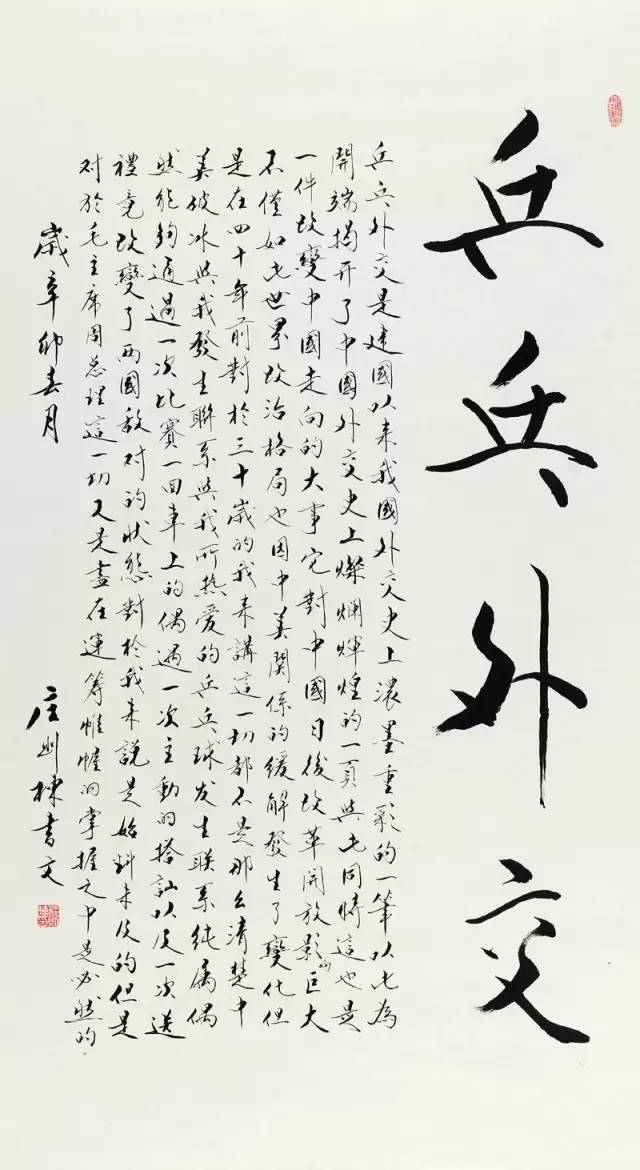 乒乓外交
乒乓外交是建國以来我國外交史上濃墨重彩的一筆以此為
開端揭开了中國外交史上燦爛輝煌的一頁與此同時這也是
一件改變中國走向的大事它對中國日後改革開放影响巨大
不僅如此世界政治格局也因中美関係的緩解發生了變化但
是在四十年前對於三十歲的我来講這一切都不是那么清楚中
美破冰與我發生聯系與我所热爱的乒乓球发生联系纯属偶
然能夠通過一次比赛一回車上的偶遇一次主動的搭訕以及一次送
禮竟改變了兩國敌对的状態對於我来説是始料未及的但是
对於毛主席周总理這一切又是盡在運筹帷幄的掌握之中是必然的
歲辛卯春月
庄则棟書文